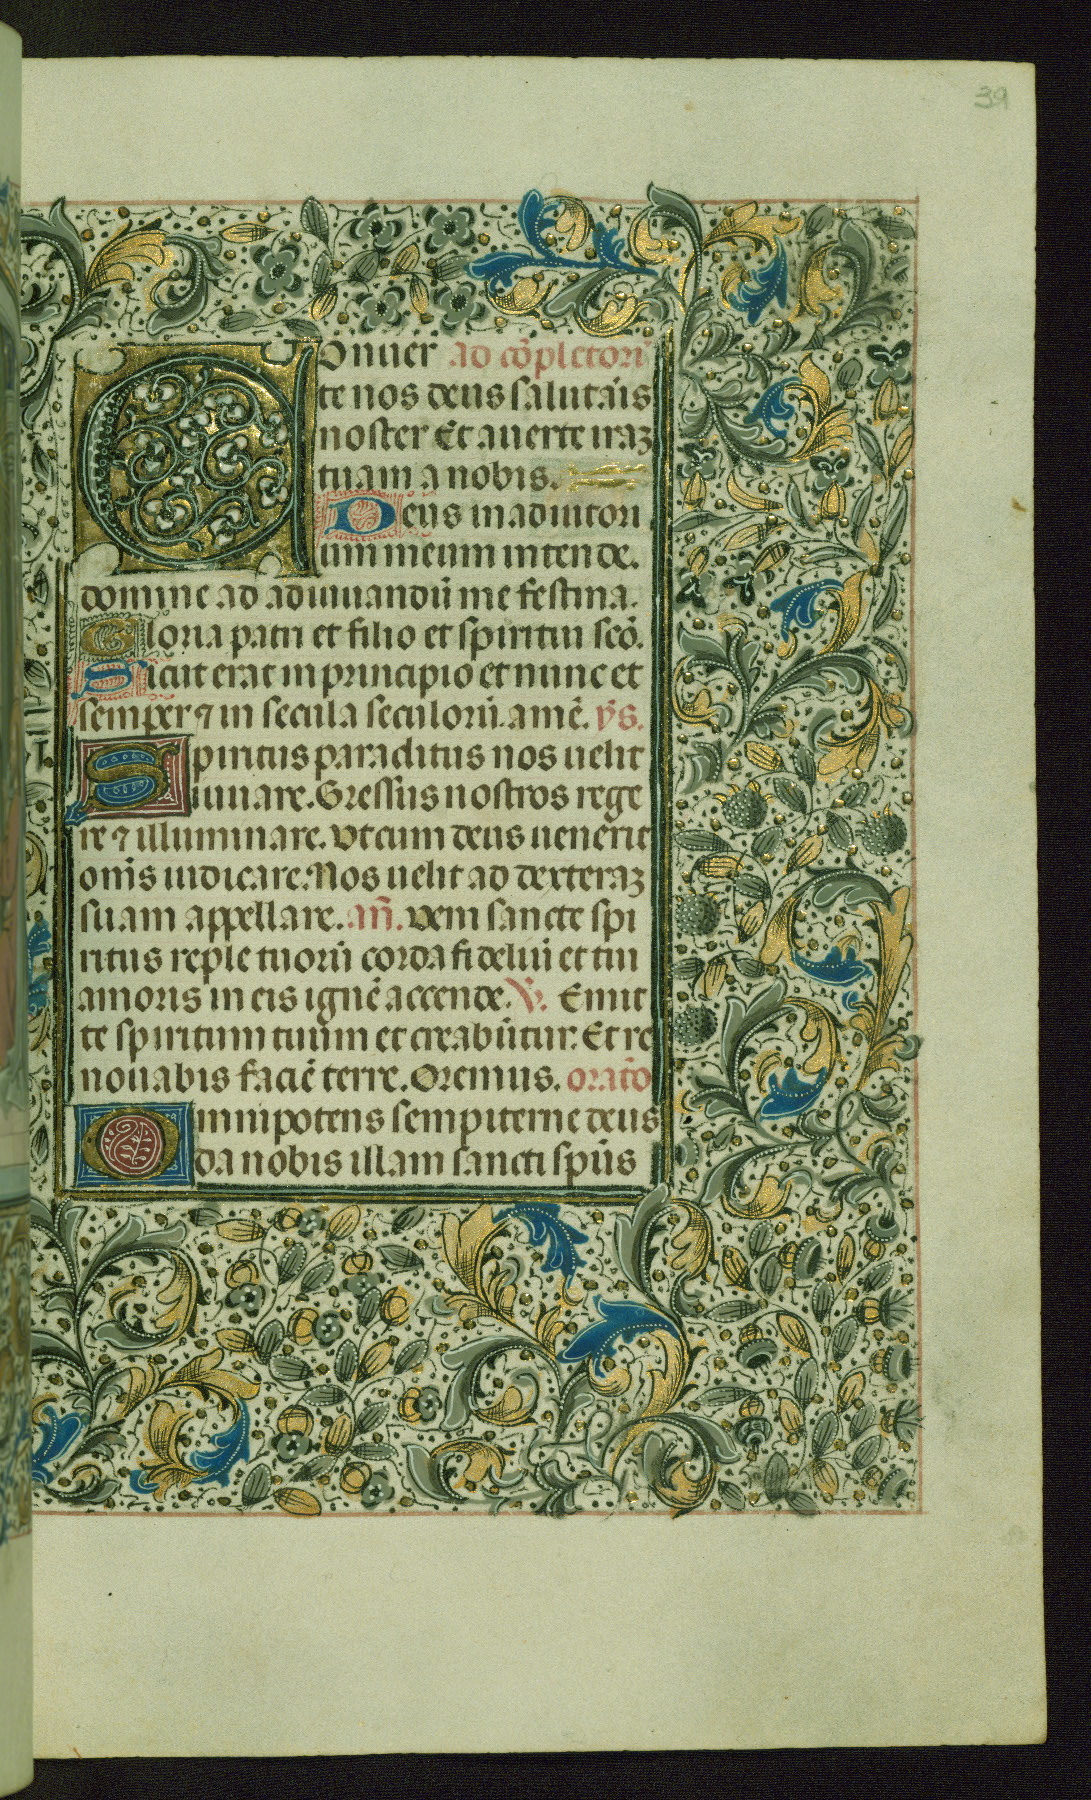 39
Conuer ad cõpletoriũ
te nos deus salutaris
noster Et auerte iraz
tuam a nobis.
Deus in adiutori
um meum intende.
domine ad adiuuandũ me festina.
Gloria patri et filio et spiritui scõ.
Sicut erat in principio et nunc et
semper ⁊ in secula seculorũ. amẽ. ỹs.
Spiritus paraclitus nos uelit
iuuare. Gressus nostros rege
re ⁊ illuminare. Vt cum deus uenerit
om̃s iudicare. Nos uelit ad dexteraz
suam appellare. añ. Veni sancte spi
ritus reple tuorũ corda fideliũ et tui
amoris in eis ignẽ accende. ℣. Emit
te spiritum tuum et creabũtur. Et re
nouabis faciẽ terre. Oremus. orat̃o
Omnipotens sempiterne deus
da nobis illam sancti spũs